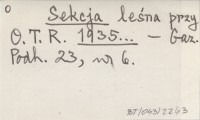 o
Sekcja leśna przy
O. T. R. 1935... — Gaz.
Podh. 23, nr 6.
BT/043/2243